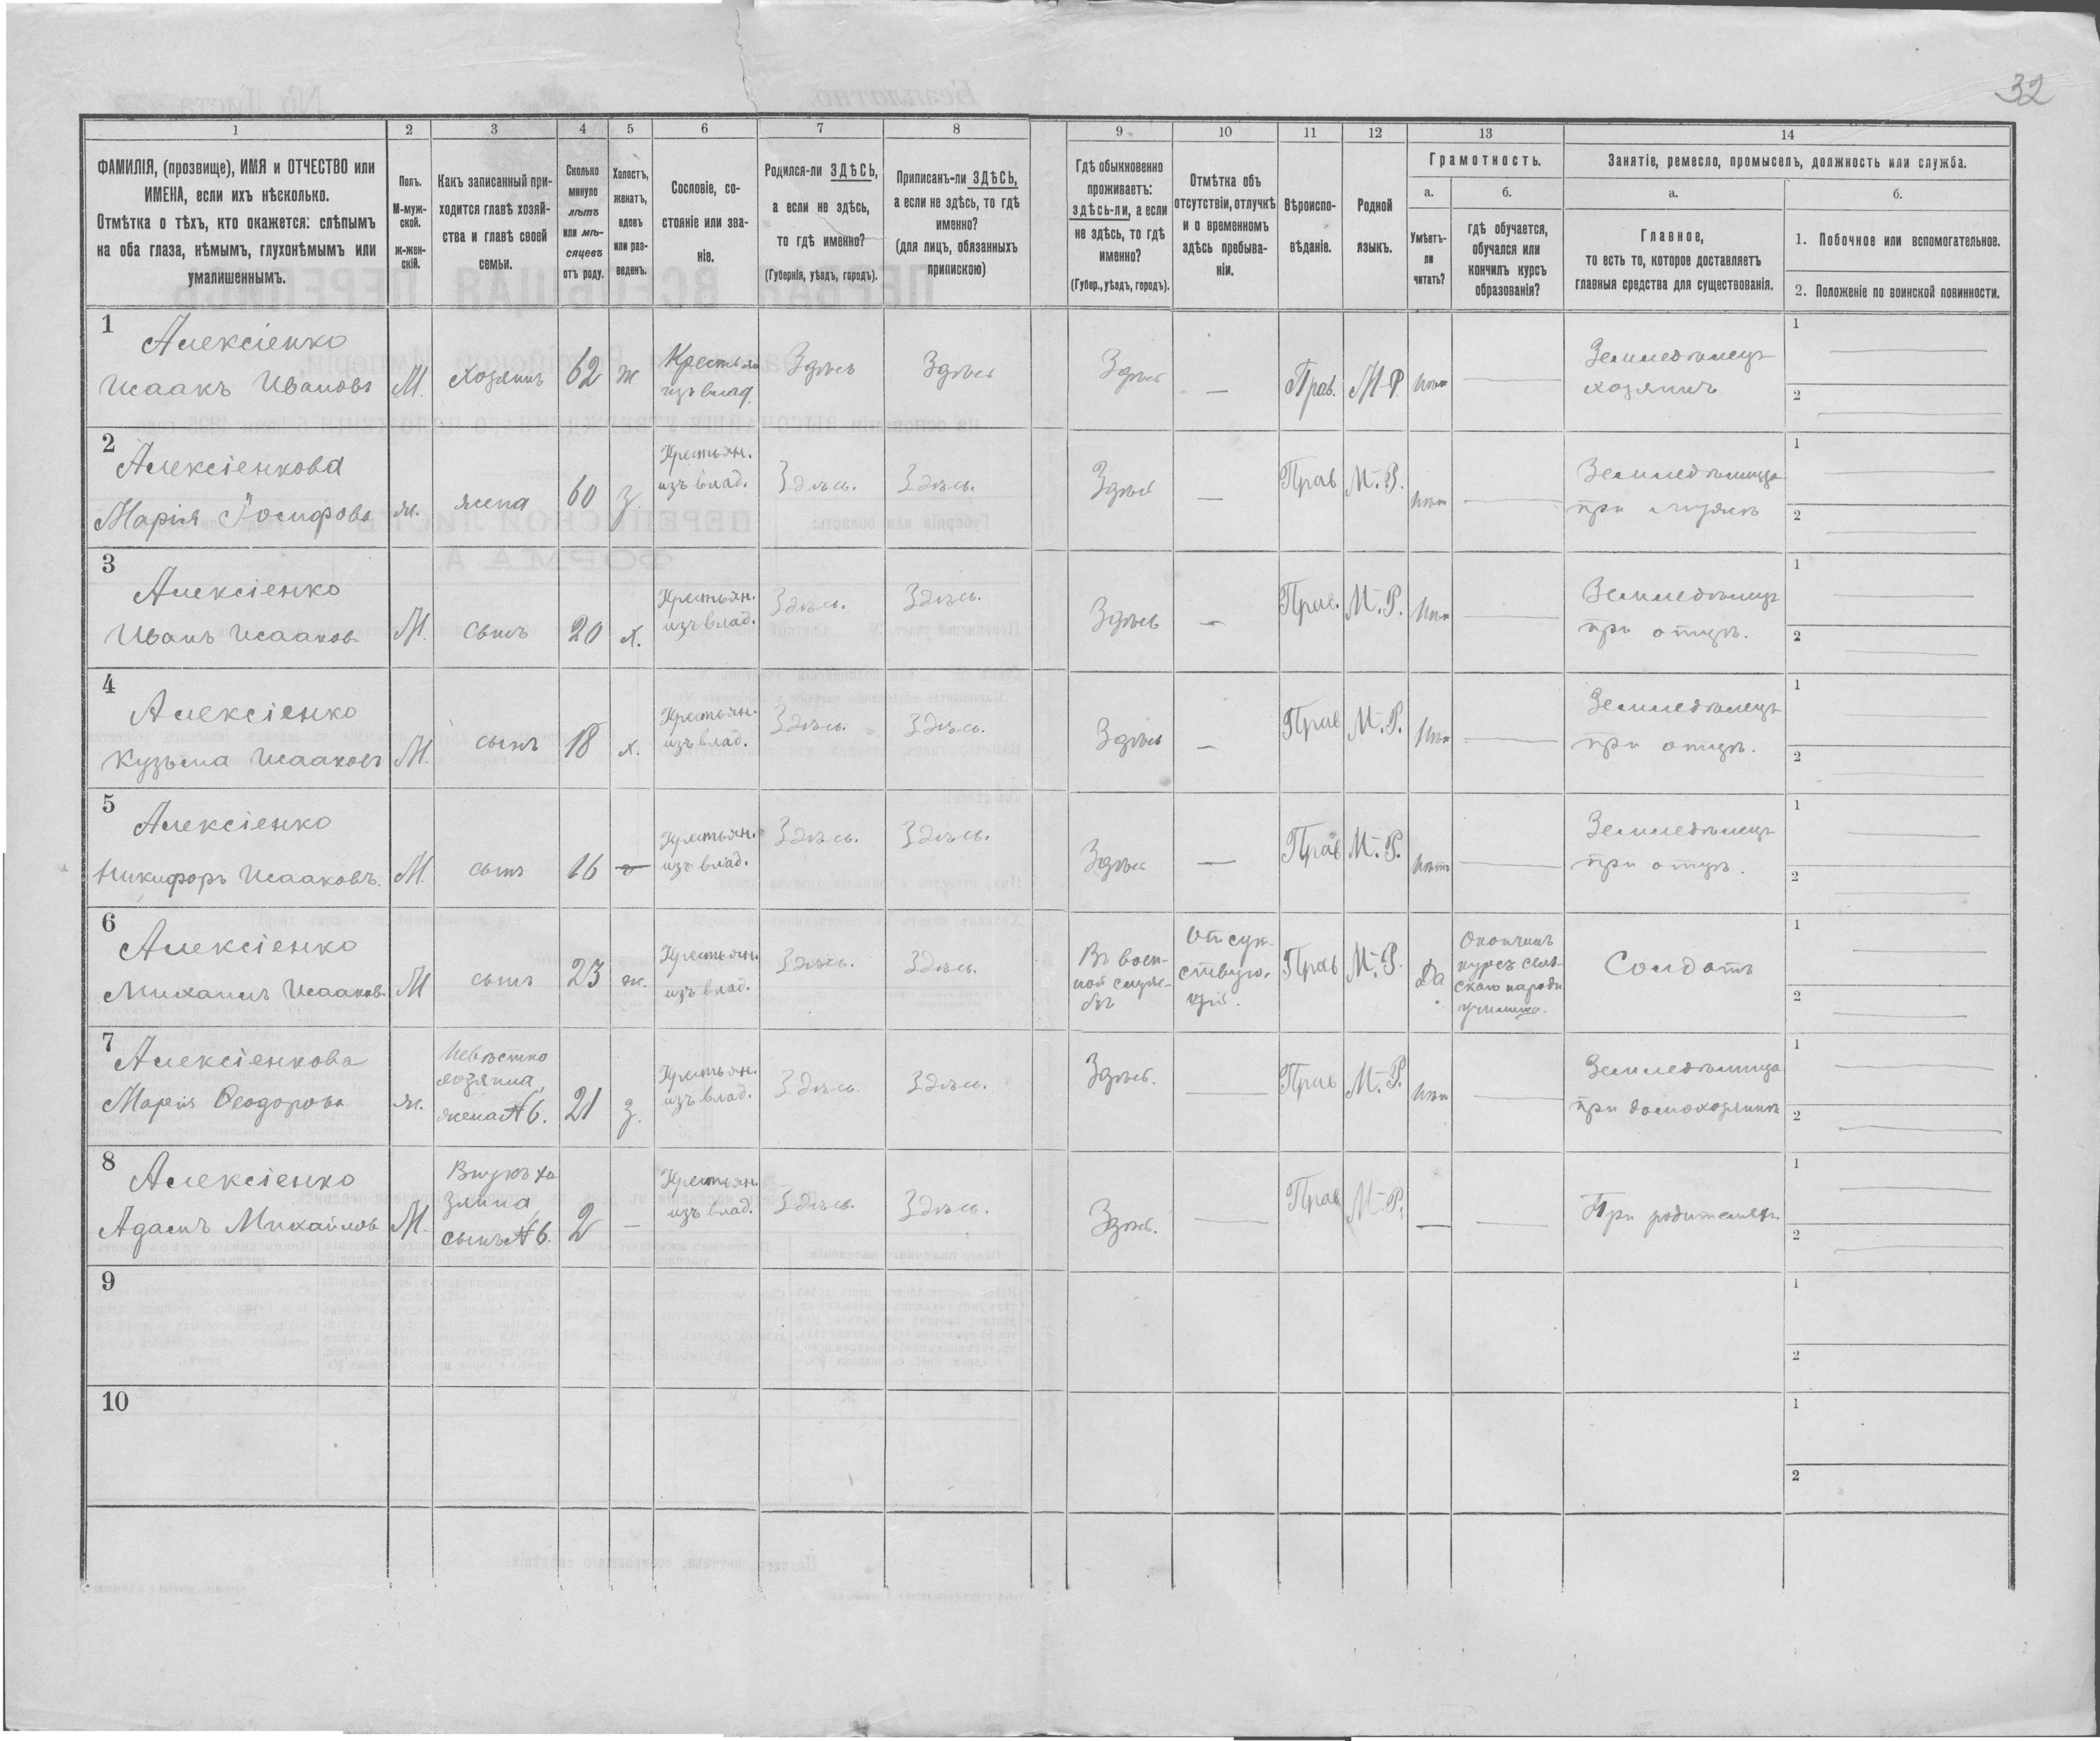 32
1 2 3 4 5 6 7 8 9 10 11 12 13 14
ФАМИЛІЯ, (прозвище), ИМЯ и ОТЧЕСТВО или
ИМЕНА, если ихъ нѣсколько.
Отмѣтка о тѣхъ, кто окажется: слѣпымъ
на оба глаза, нѣмымъ, глухонѣмымъ или
умалишеннымъ.
Полъ.
М-муж-
ской.
ж-жен-
скій.
Какъ записанный при-
ходится главѣ хозяй-
ства и главѣ своей
семьи.
Сколько
минуло
лѣтъ
или мѣ-
сяцевъ
отъ роду.
Холостъ,
женатъ,
вдовъ
или раз-
веденъ.
Сословіе, со-
стояніе или зва-
ніе.
Родился-ли ЗДѢСЬ,
а если не здѣсь,
то гдѣ именно?
(Губернія, уѣздъ, городъ).
Приписанъ-ли ЗДѢСЬ,
а если не здѣсь, то гдѣ
именно?
(для лицъ, обязанныхъ
припискою)
Гдѣ обыкновенно
проживаетъ:
здѣсь-ли, а если
не здѣсь, то гдѣ
именно?
(Губер., уѣздъ, городъ).
Отмѣтка объ
отсутствіи, отлучкѣ
и о временномъ
здѣсь пребыва-
ніи.
Вѣроиспо-
вѣданіе.
Родной
языкъ.
Грамотность.
а.
Умѣетъ-
ли
читать?
б.
гдѣ обучается,
обучался или
кончилъ курсъ
образованія?
Занятіе, ремесло, промыселъ, должность или служба.
а.
Главное,
то есть то, которое доставляетъ
главныя средства для существованія.
б.
1. Побочное или вспомогательное.
2. Положеніе по воинской повинности.
1
Алексіенко
Исаакъ Ивановъ
М.
хозяинъ
62
ж
Крестьян
изъ влад.
Здѣсь
Здѣсь
Здѣсь
—
Прав.
М-Р.
Нѣт
Земледѣлецъ
хозяинъ
1
2
2
Алексіенкова
Марія Іосифова
ж.
жена
60
з.
Крестьян.
изъ влад.
Здѣсь.
Здѣсь.
Здѣсь
—
Прав
М.-Р.
Нѣт
Земледѣлица
при мужѣ
1
2
3
Алексіенко
Иванъ Исааков
М.
сынъ
20
х.
Крестьян.
изъ влад.
Здѣсь.
Здѣсь.
Здѣсь
—
Прав.
М.-Р.
Нѣт
Земледѣлецъ
при отцѣ.
1
2
4
Алексіенко
Кузьма Исааковъ
М.
сынъ
18
х.
Крестьян.
изъ влад.
Здѣсь.
Здѣсь.
Здѣсь
—
Прав
М.-Р.
Нѣт
Земледѣлецъ
при отцѣ.
1
2
5
Алексіенко
Никифоръ Исааковъ.
М.
сынъ
16
Крестьян.
изъ влад.
Здѣсь.
Здѣсь.
Здѣсь
—
Прав
М.-Р.
Нѣтъ
Земледѣлецъ
при отцѣ.
1
2
6
Алексіенко
Михаилъ Исааков
М
сынъ
23
ж.
Крестьян.
изъ влад.
Здѣсь.
Здѣсь.
Въ воен-
ной служ-
бѣ
Отсут-
ствую-
щій.
Прав
М.-Р.
Да
Окончилъ
курсъ сель-
скаго народн
училища.
Солдатъ
1
2
7
Алексіенкова
Марія Ѳеодорова
ж.
Невѣстка
хозяина,
жена № 6.
21
з.
Крестьян.
изъ влад.
Здѣсь.
Здѣсь.
Здѣсь.
—
Прав
М.-Р.
Нѣт
Земледѣлица
при домохозяинѣ
1
2
8
Алексіенко
Адамъ Михайлов
М.
Внукъ хо
зяина,
сынъ № 6.
2
—
Крестьян.
изъ влад.
Здѣсь.
Здѣсь.
Здѣсь.
—
Прав
М.-Р.
—
При родителяхъ.
1
2
9
1
2
10
1
2